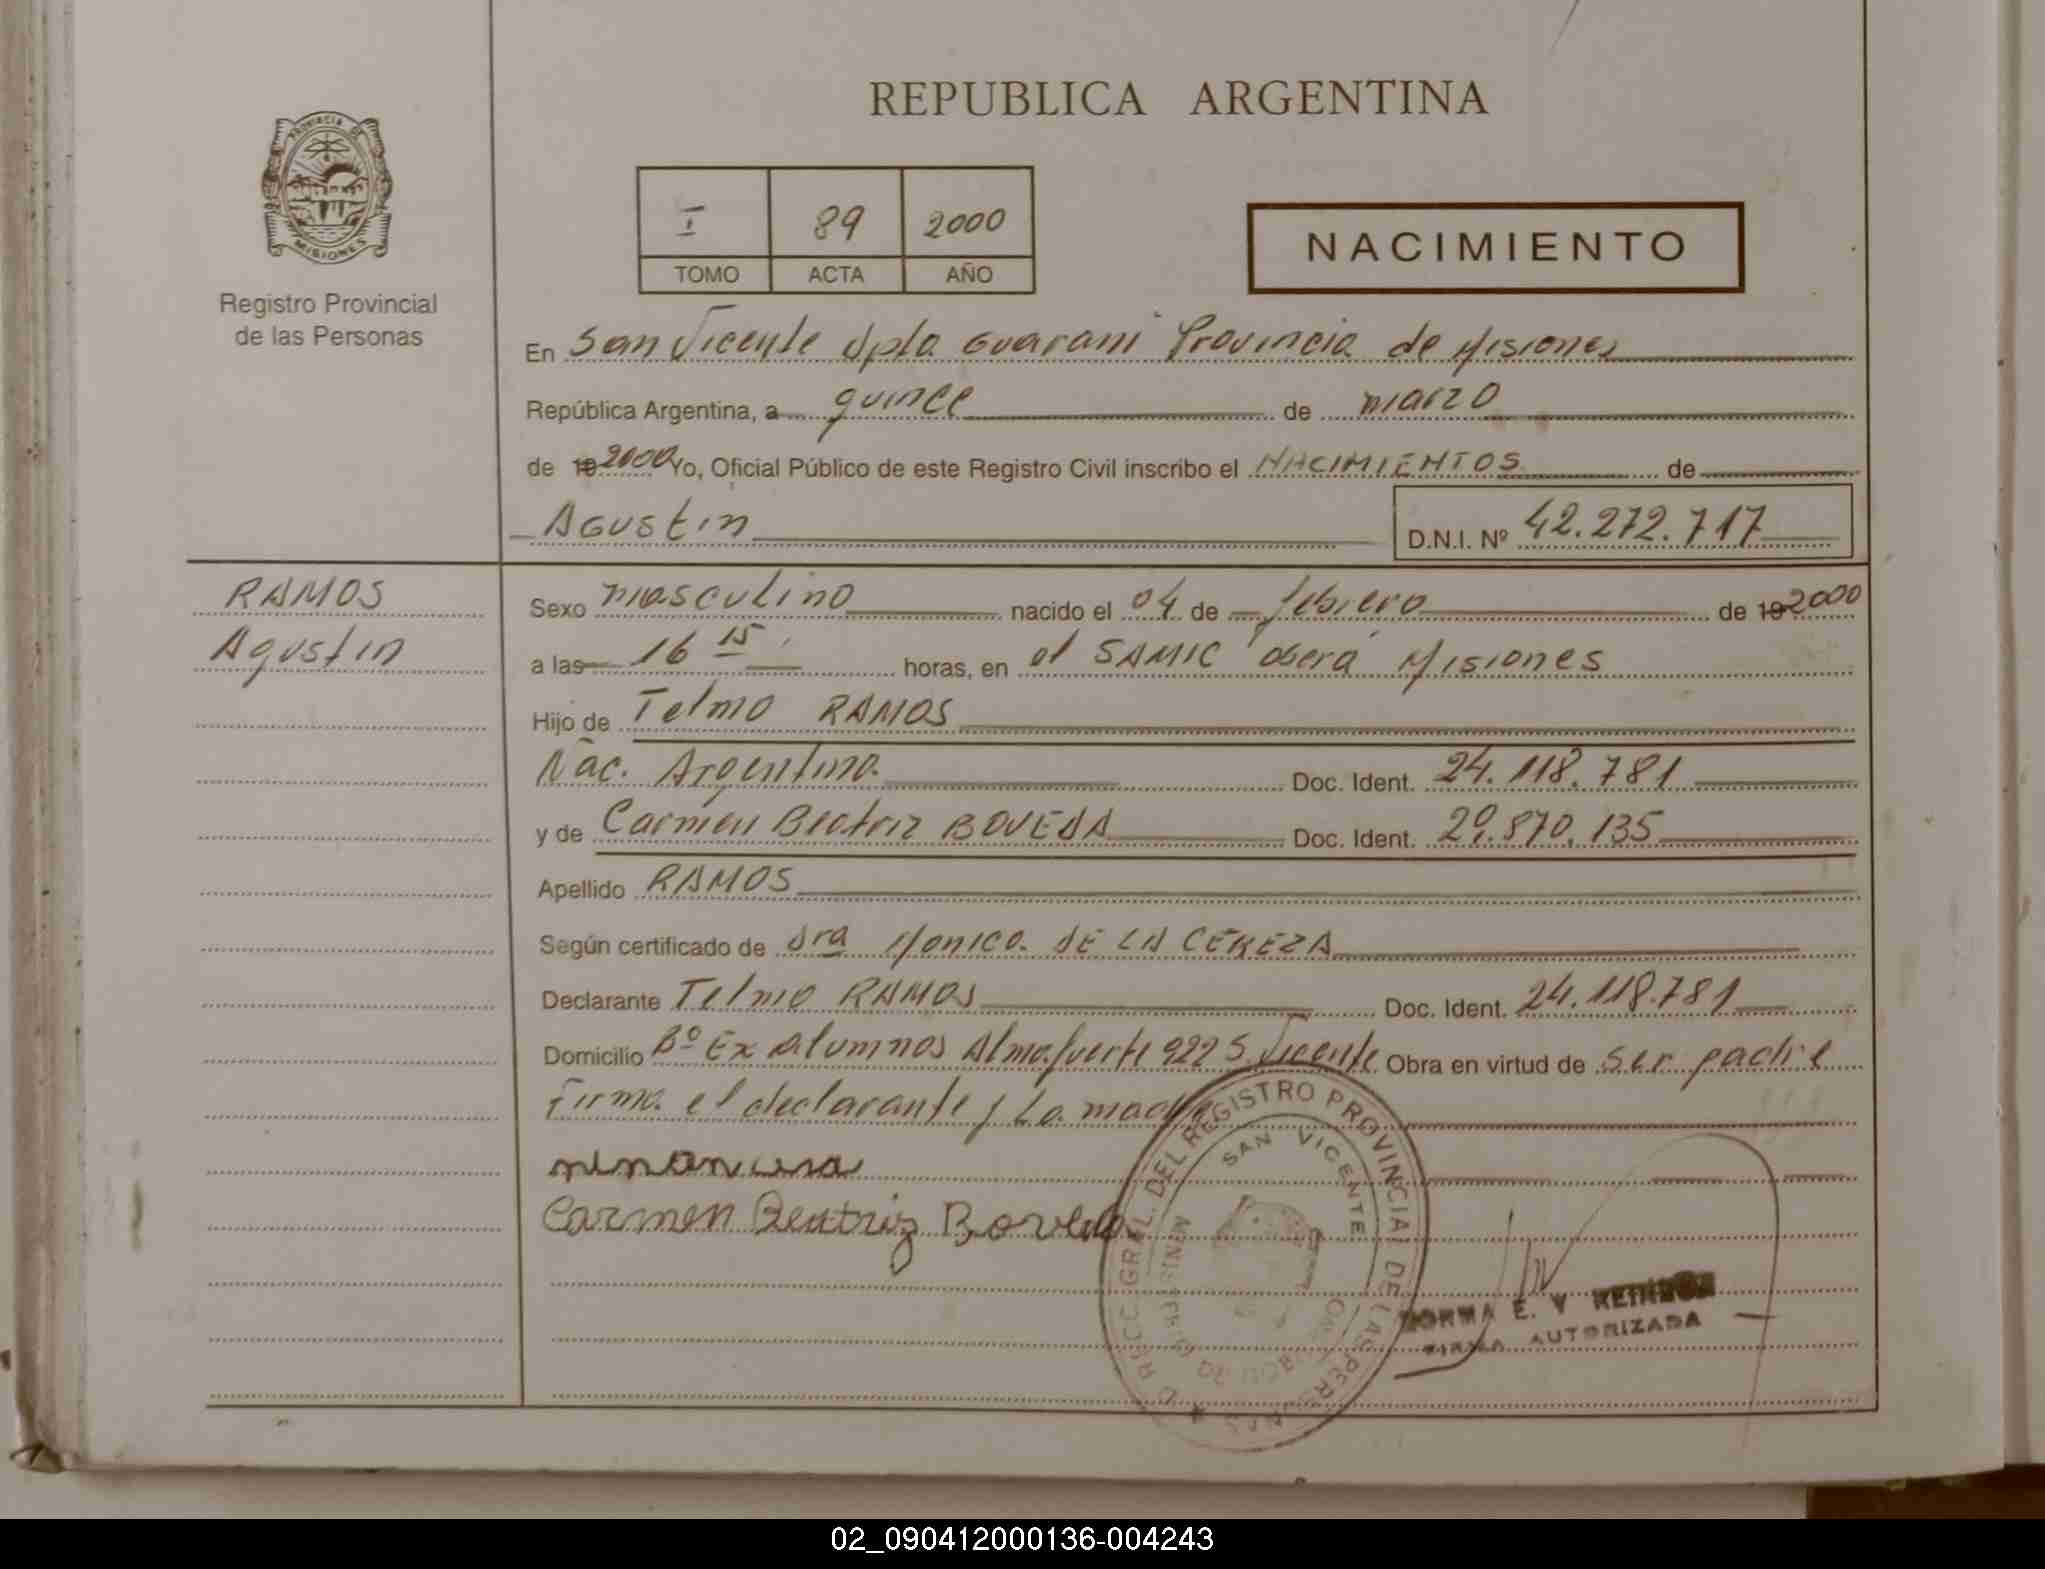 REPUBLICA ARGENTINA
PROVINCIA DE
MISIONES
Registro Provincial
de las Personas
I 89 2000
TOMO ACTA AÑO
NACIMIENTO
En San Vicente Dpto Guarani Provincia de Misiones
República Argentina, a quince de marzo
de 19 2000 Yo, Oficial Público de este Registro Civil inscribo el NACIMIENTOS de
Agustin
D.N.I. Nº 42.272.717
RAMOS
Agustin
Sexo masculino nacido el 04 de febrero de 19 2000
a las 16 15 horas, en el SAMIC Oberá Misiones
Hijo de Telmo RAMOS
Nac. Argentina Doc. Ident. 24.118.781
y de Carmen Beatriz BOVEDA Doc. Ident. 29.870.135
Apellido RAMOS
Según certificado de Dra Monica DE LA CEREZA
Declarante Telmo RAMOS Doc. Ident. 24.118.781
Domicilio Bº Ex Alumnos Almafuerte 922 S. Vicente Obra en virtud de ser padre
Firma el declarante y La madre
Carmen Beatriz Boveda
DIRECC. GRAL. DEL REGISTRO PROVINCIAL DE LAS PERSONAS
SAN VICENTE
NORMA E. V
FIRMA AUTORIZADA
02_090412000136-004243